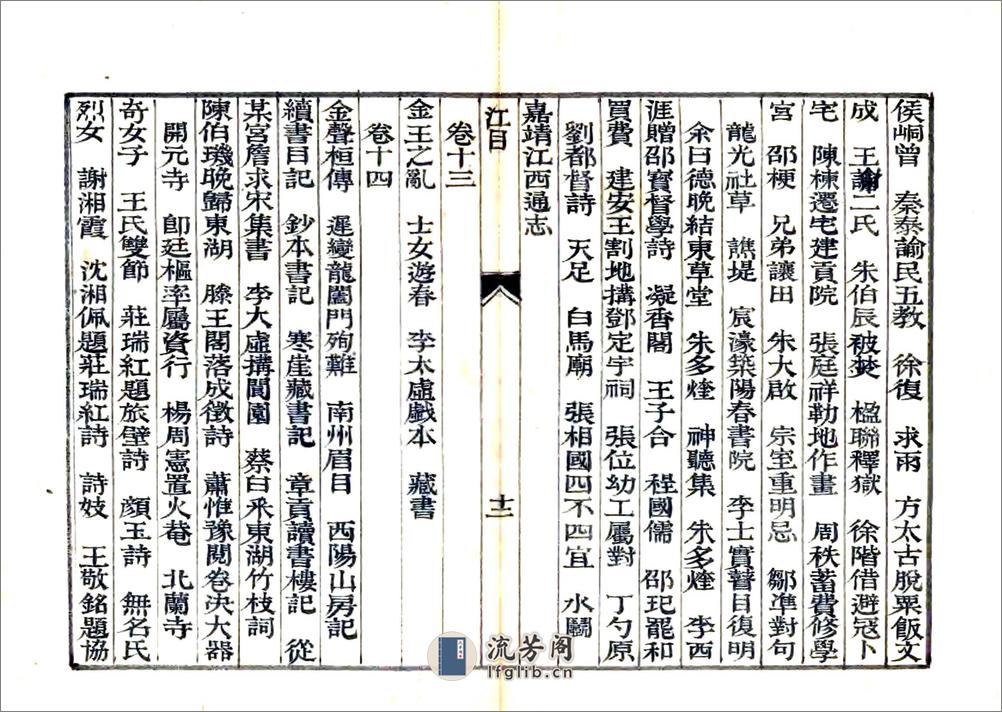 侯峒曾　秦泰諭民五教　徐復　求雨　方太古脫粟飯文
成　王謝二氏　朱伯辰被焚　楹聯釋獄　徐階借避冠卜
宅　陳棟遷宅建貢院　張庭祥勒地作畫　周秩蓄費修學
宮　邵梗　兄弟讓田　朱大啟　宗室重明忌　鄒準對句
龍光社草　譙堤　宸濠築陽春書院　李士實瞽目復明
余曰德晚結東草堂　朱多煃　神聽集　朱多煃　李西
涯贈邵寶督學詩　凝香閣　王子合　程國儒　邵玘罷和
買費　建安王割地搆鄧定宇祠　張位幼工屬對　丁勺原
劉都督詩　天足　白馬廟　張相國四不四宜　水鬭
嘉靖江西通志
江目
十二
卷十三
金王之亂　士女遊春　李太虛戲本　藏書
卷十四
金聲桓傳　遲變龍闔門殉難　南州眉目　西陽山房記
續書目記　鈔本書記　寒崖藏書記　章貢讀書樓記　從
某宮詹求宋集書　李大虛搆閬園　蔡白采東湖竹枝詞
陳伯璣晚歸東湖　滕王閣落成徵詩　蕭惟豫閱卷決大器
開元寺　郎廷樞率屬資行　楊周憲置火菴　北蘭寺
奇女子　王氏雙節　莊瑞紅題旅壁詩　顏玉詩　無名氏
烈女　謝湘霞　沈湘佩題莊瑞紅詩　詩妓　王敬銘題協
流芳阁
lfglib.cn